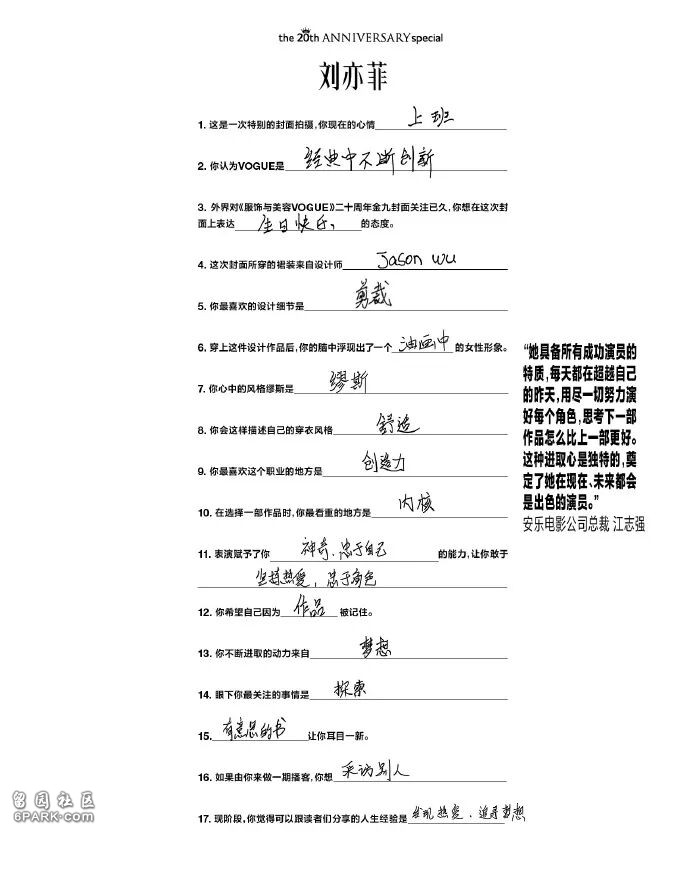 the 20th ANNIVERSARY special
刘亦菲
1. 这是一次特别的封面拍摄,你现在的心情 上班
2. 你认为VOGUE是 经典中不断创新
3. 外界对《服饰与美容VOGUE》二十周年金九封面关注已久,你想在这次封
面上表达 生日快乐, 的态度。
4. 这次封面所穿的裙装来自设计师 Jason wu
5. 你最喜欢的设计细节是 剪裁
6. 穿上这件设计作品后,你的脑中浮现出了一个 油画中 的女性形象。
7. 你心中的风格缪斯是 缪斯
8. 你会这样描述自己的穿衣风格 舒适
9. 你最喜欢这个职业的地方是 创造力
10. 在选择一部作品时,你最看重的地方是 内核
11. 表演赋予了你 神奇、忠于自己 的能力,让你敢于
坚持热爱, 忠于角色
12. 你希望自己因为 作品 被记住。
13. 你不断进取的动力来自 梦想
14. 眼下你最关注的事情是 探索
15. 有意思的书 让你耳目一新。
16. 如果由你来做一期播客,你想 采访别人
17. 现阶段,你觉得可以跟读者们分享的人生经验是 发现热爱、追寻梦想
“她具备所有成功演员的
特质,每天都在超越自己
的昨天,用尽一切努力演
好每个角色,思考下一部
作品怎么比上一部更好。
这种进取心是独特的,奠
定了她在现在、未来都会
是出色的演员。”
安乐电影公司总裁 江志强
留园社区
6PARK.COM